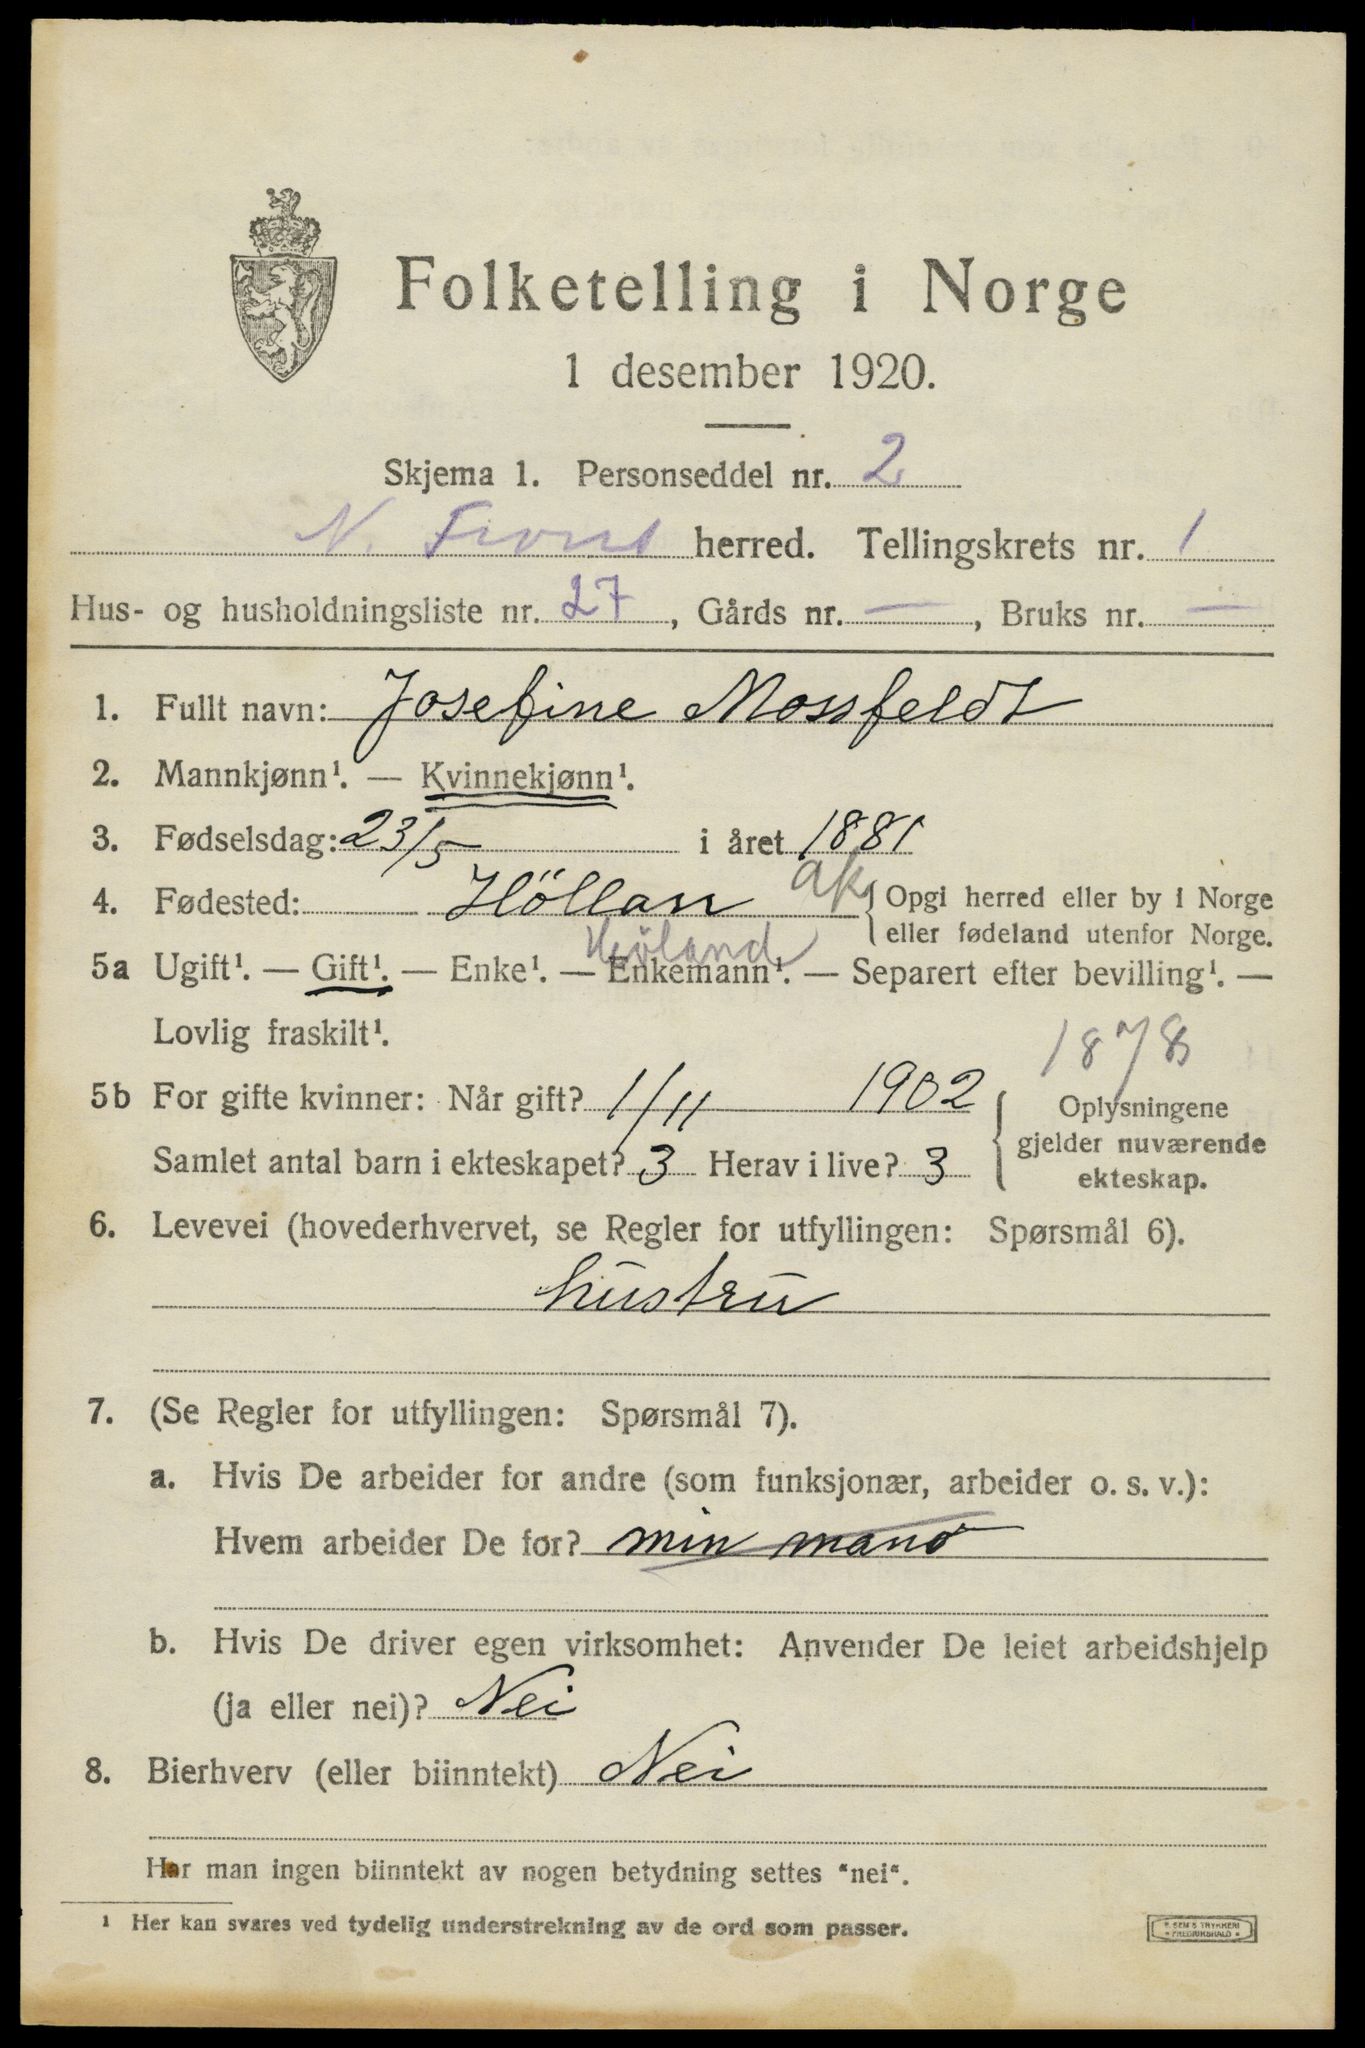 Folketelling i Norge
1 desember 1920.
Skjema 1. Personseddel nr. 2
N. Fron herred. Tellingskrets nr. 1
Hus- og husholdningsliste nr. 27, Gårds nr. —, Bruks nr. —
1. Fullt navn: Josefine Mossfeldt
2. Mannkjønn¹. — Kvinnekjønn¹.
3. Fødselsdag: 23/5 i året 1881
4. Fødested: Höllan Ak { Opgi herred eller by i Norge
eller fødeland utenfor Norge.
Høland
5a Ugift¹. — Gift¹. — Enke¹. — Enkemann¹. — Separert efter bevilling¹. —
Lovlig fraskilt¹.
1878
5b For gifte kvinner: Når gift? 1/11 1902 { Oplysningene
gjelder nuværende
Samlet antal barn i ekteskapet? 3 Herav i live? 3
ekteskap.
6. Levevei (hovederhvervet, se Regler for utfyllingen: Spørsmål 6).
hustru
7. (Se Regler for utfyllingen: Spørsmål 7).
a. Hvis De arbeider for andre (som funksjonær, arbeider o. s. v.):
Hvem arbeider De for? min mand
b. Hvis De driver egen virksomhet: Anvender De leiet arbeidshjelp
(ja eller nei)? Nei
8. Bierhverv (eller biinntekt) Nei
Har man ingen biinntekt av nogen betydning settes "nei".
¹ Her kan svares ved tydelig understrekning av de ord som passer.
E. SEM'S TRYKKERI
• FREDRIKSHALD •